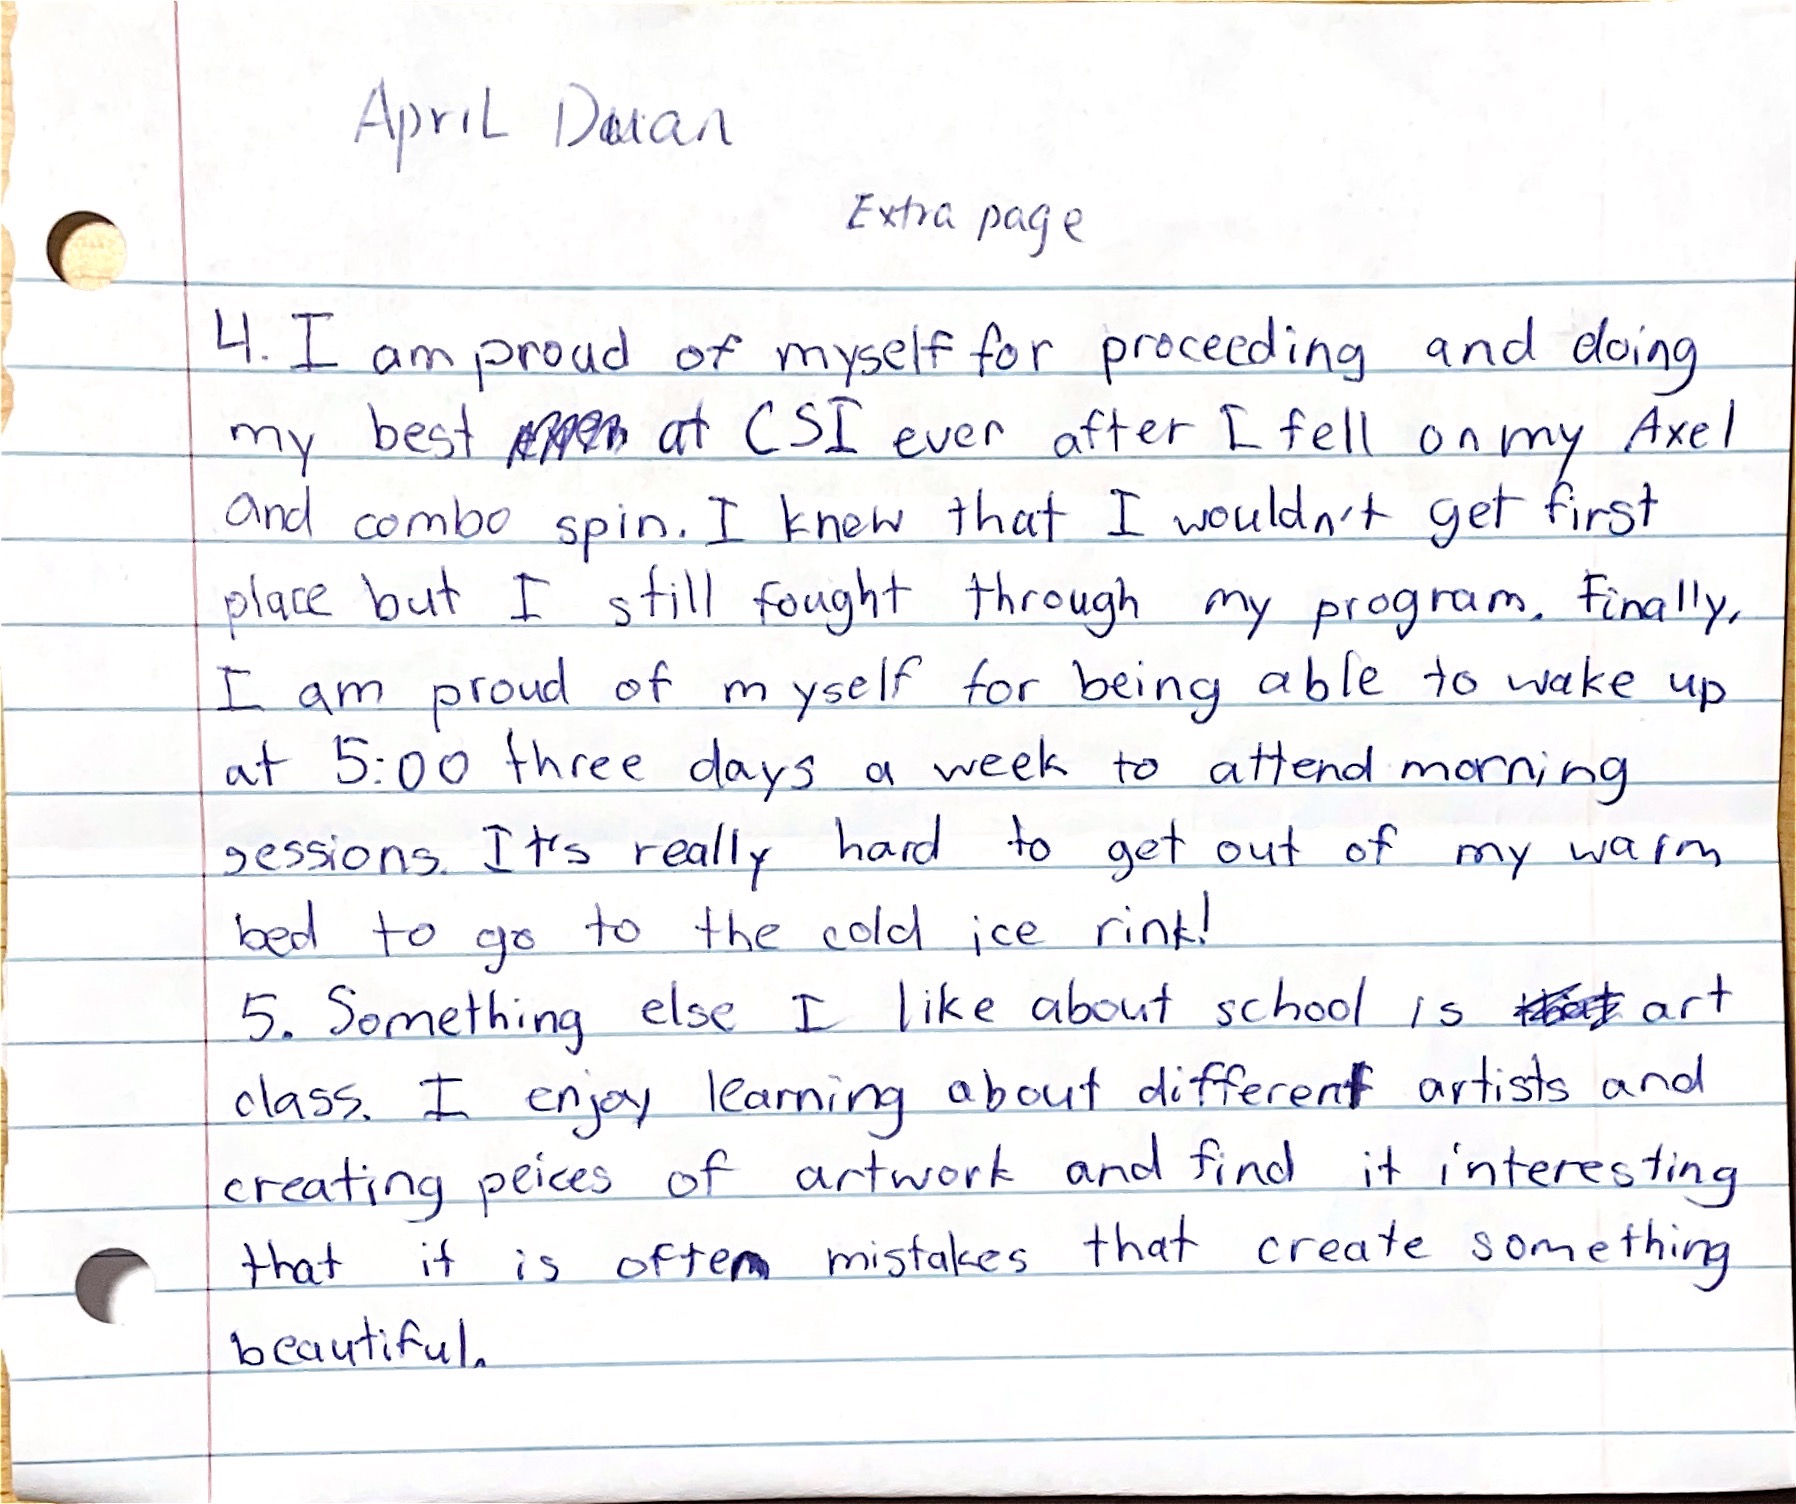 April Duan
Extra page
4. I am proud of myself for proceeding and doing
my best at CSI ever after I fell on my Axel
and combo spin. I knew that I wouldn't get first
place but I still fought through my program. Finally,
I am proud of myself for being able to wake up
at 5:00 three days a week to attend morning
sessions. It's really hard to get out of my warm
bed to go to the cold ice rink!
5. Something else I like about school is art
class. I enjoy learning about different artists and
creating peices of artwork and find it interesting
that it is often mistakes that create something
beautiful.